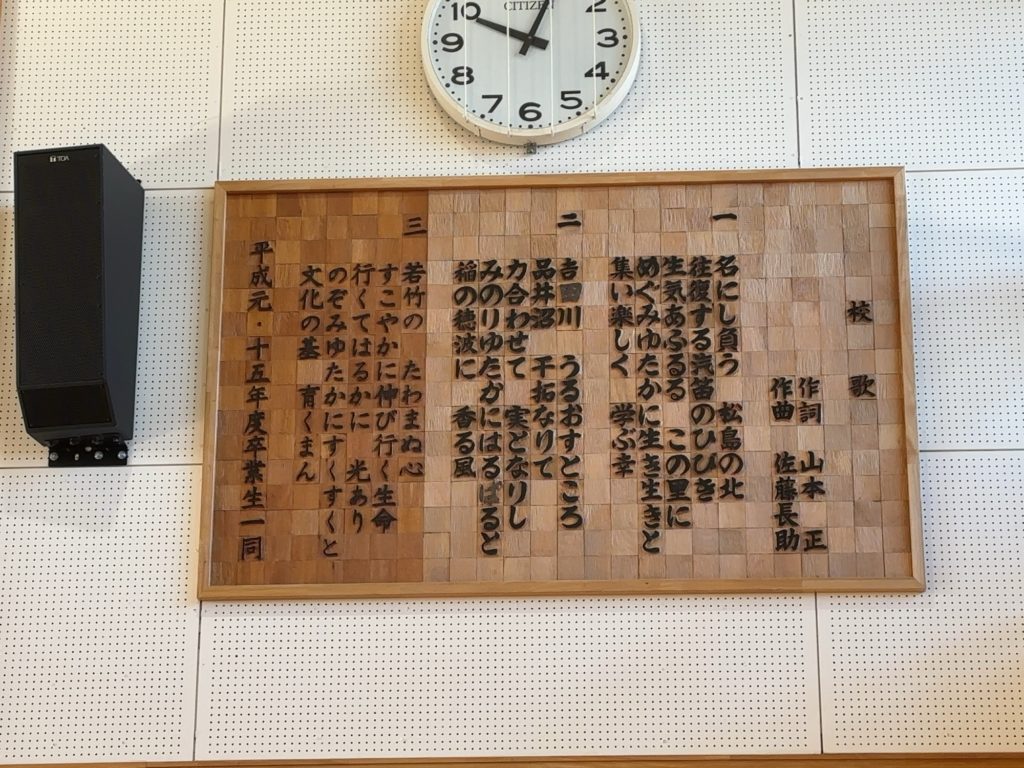 CITIZEN
10
9
8
7
6
5
4
3
2
TOA
校歌
作詞 山本 正
作曲 佐藤長助
一
名にし負う 松島の北
往復する汽笛のひびき
生気あふるる この里に
めぐみゆたかに生き生きと
集い楽しく 学ぶ幸
二
吉田川 うるおすところ
品井沼 干拓なりて
力合わせて 実どなりし
みのりゆたかにはるばると
稲の穂波に 香る風
三
若竹の たわまぬ心
すこやかに伸び行く生命
行くてはるかに 光あり
のぞみゆたかにすくすくと
文化の基 育くまん
平成元・十五年度卒業生一同